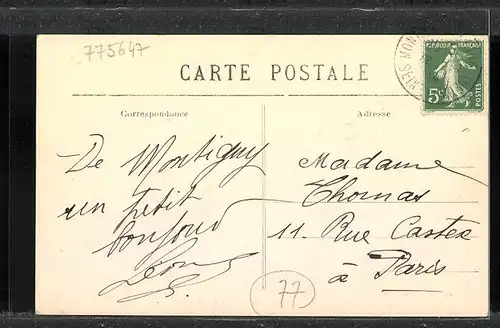 775647
CARTE POSTALE
REPUBLIQUE FRANÇAISE
5c
POSTES
Correspondance
Adresse
De Montigny
un petit
bonjour
Léon
Madame
Thomas
11 Rue Castex
à Paris
77